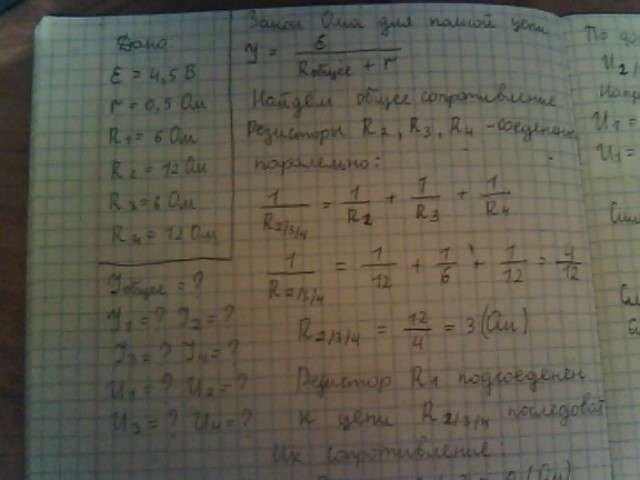 Дано
ε = 4,5 В
r = 0,5 Ом
R1 = 6 Ом
R2 = 12 Ом
R3 = 6 Ом
R4 = 12 Ом
Jобщее = ?
J1 = ? J2 = ?
J3 = ? J4 = ?
U1 = ? U2 = ?
U3 = ? U4 = ?
Закон Ома для полной цепи
J = ε / Rобщее + r
Найдём общее сопротивление
Резисторы R2, R3, R4 - соеденены
паралельно:
1/R2/3/4 = 1/R2 + 1/R3 + 1/R4
1/R2/3/4 = 1/12 + 1/6 + 1/12 = 4/12
R2/3/4 = 12/4 = 3 (Ом)
Резистор R1 подсоеденен
к цепи R2/3/4 последоват
Их сопротивление:
По
U2/
U1 =
U1 =